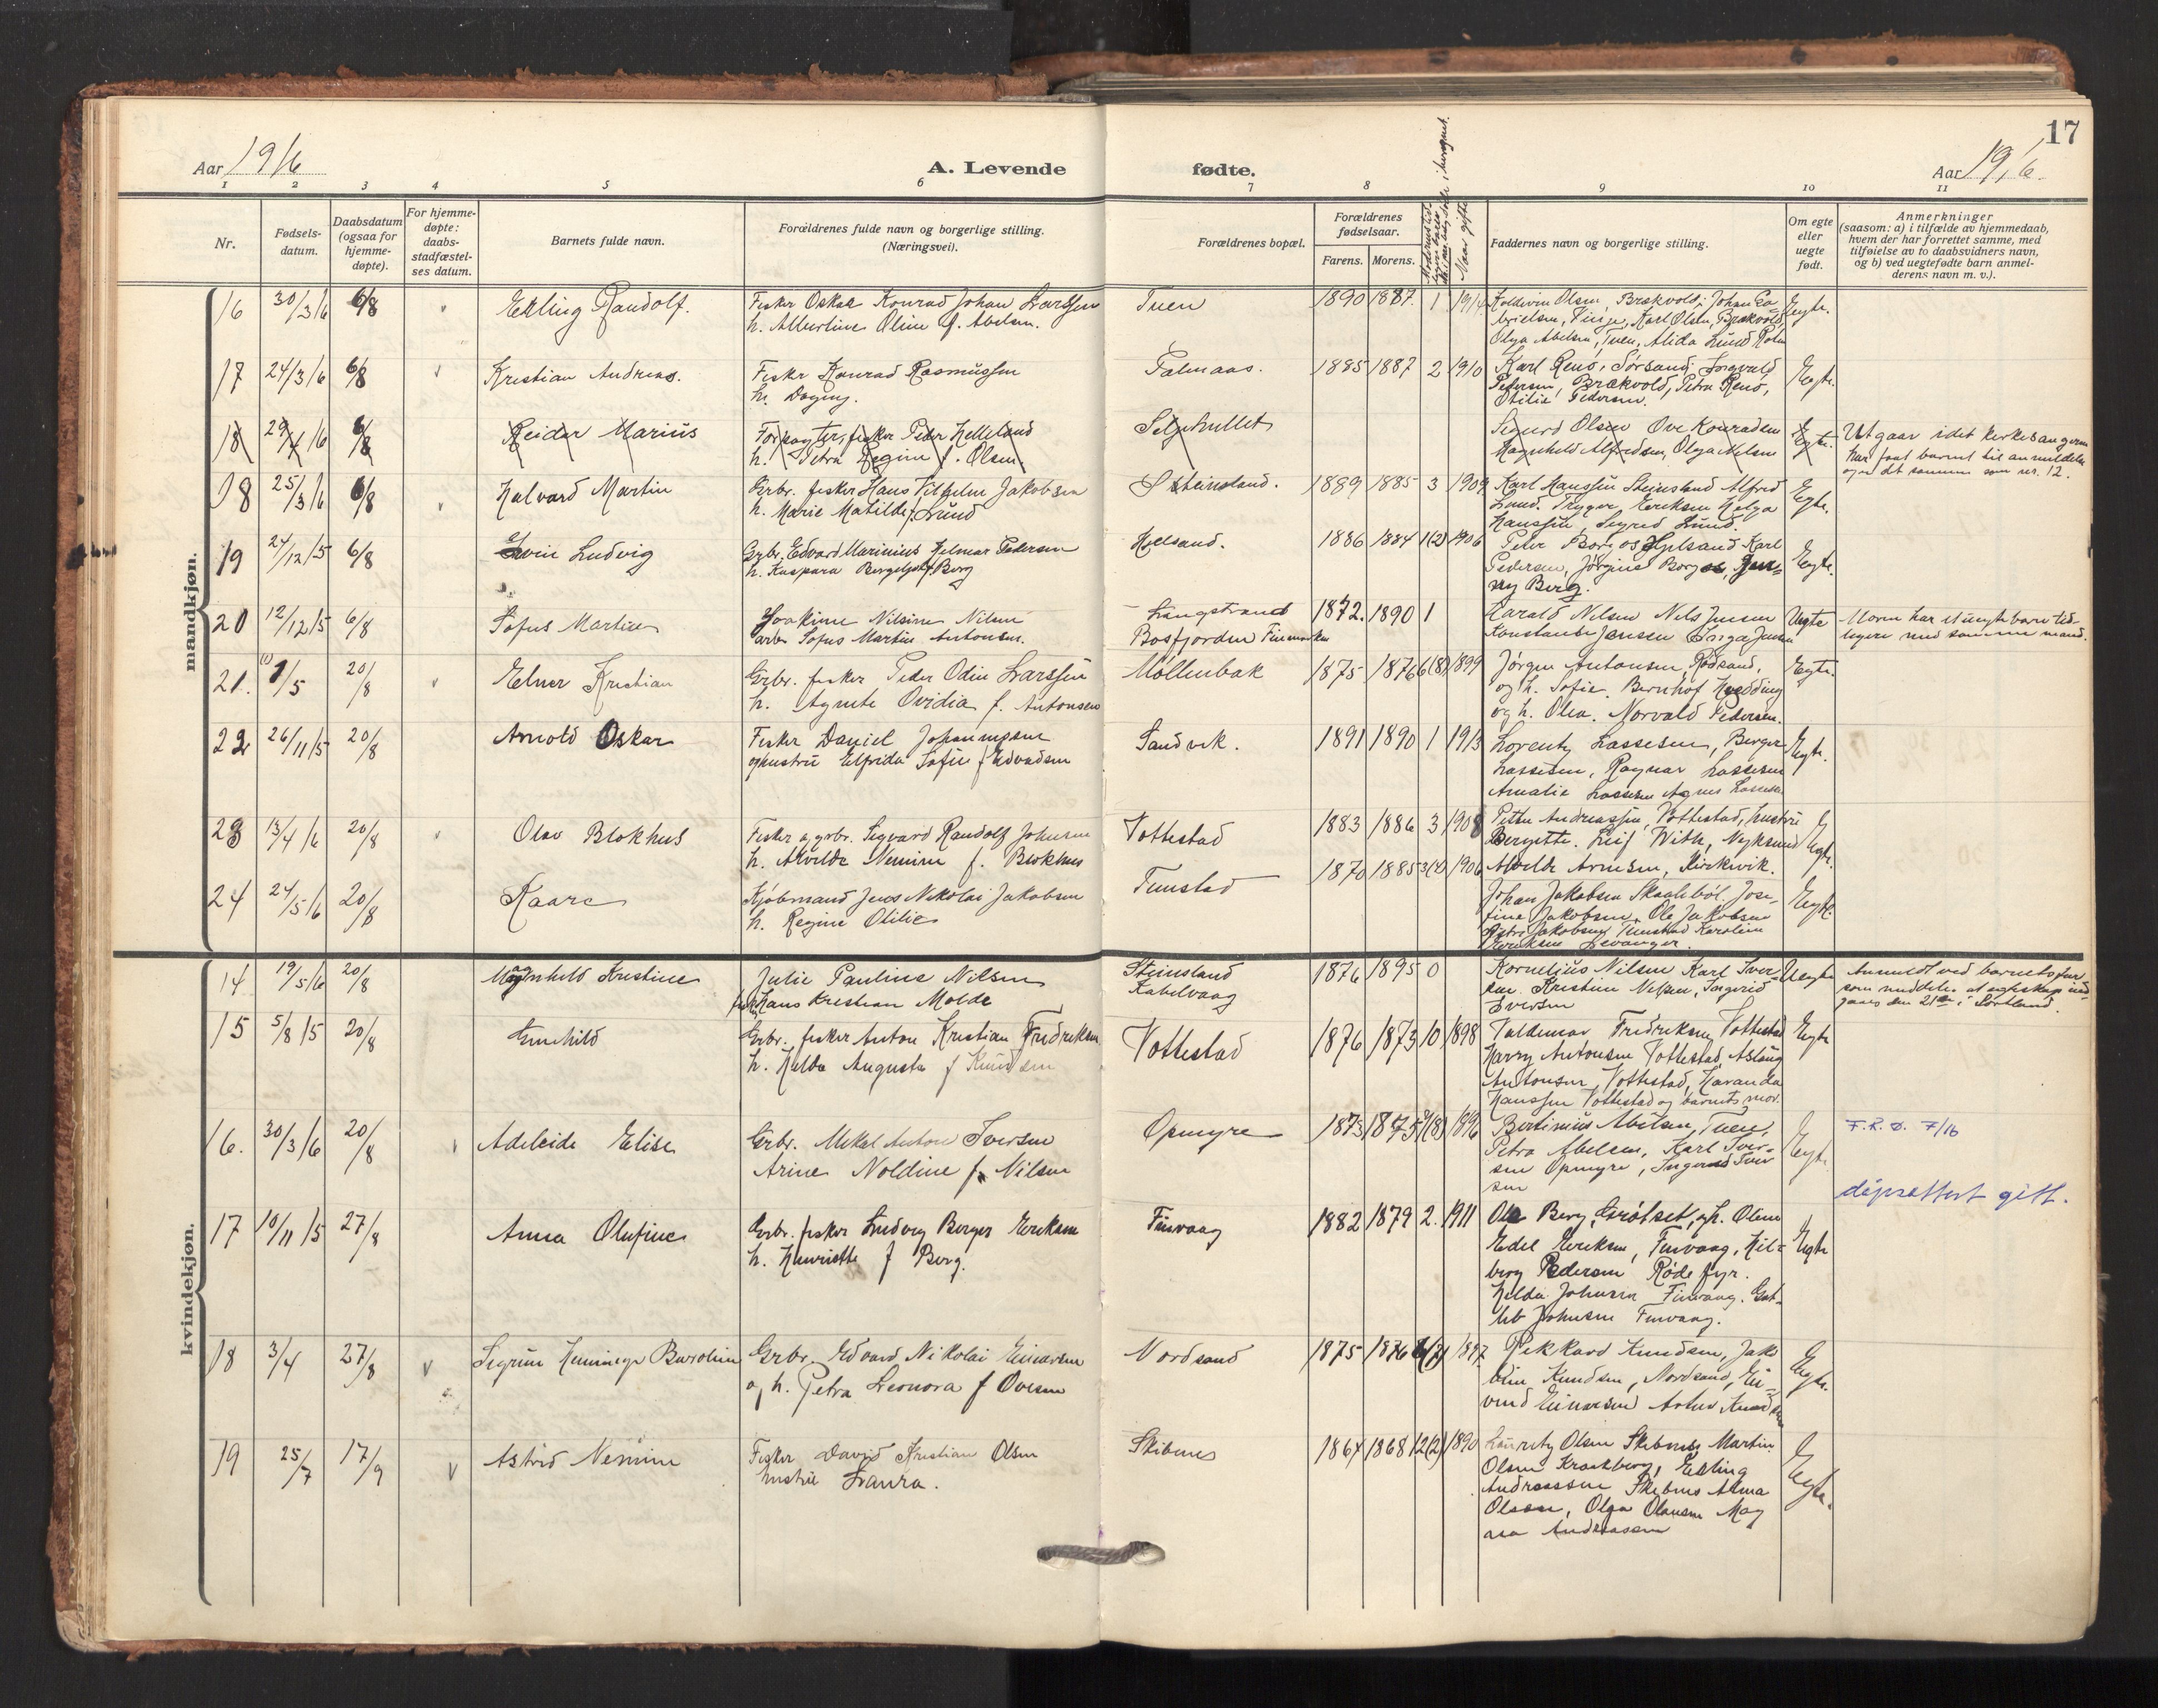 17
Aar 1916
A. Levende
fødte.
Aar 1916.
1 2 3 4 5 6 7 8 9 10 11
Nr.
Fødsels-
datum.
Daabsdatum
(ogsaa for
hjemme-
døpte).
For hjemme-
døpte:
daabs-
stadfæstel-
ses datum.
Barnets fulde navn.
Forældrenes fulde navn og borgerlige stilling.
(Næringsvei).
Forældrenes bopæl.
Forældrenes
fødselsaar.
Farens. Morens.
Naar gifte
Faddernes navn og borgerlige stilling.
Om egte
eller
uegte
født.
Anmerkninger
(saasom: a) i tilfælde av hjemmedaab,
hvem der har forrettet samme, med
tilføielse av to daabsvidners navn,
og b) ved uegtefødte barn anmel-
derens navn m. v.).
mandkjøn.
16 30/3 16 6/8 Erling Randolf.
Fisker Oskar Konrad Johan Larssen
h. Albertine Oline f. Abelsen.
Tuen 1890 1887. 1 1914
Olsen, Brækvold, Johan Ga-
brielsen, Vinje, Karl Olsen, Brækvold,
Olga Abelsen, Tuen, Alida Lund
Egte.
17 24/3 16 6/8 Kristian Andreas.
Fisker Konrad Rasmussen
h. Dagny.
1885 1887 2 1910
Karl Renø, Sørsand, Ingvald
Pedersen, Brækvold, Petra Renø,
Otilie Pedersen.
Egte.
18 29/4 16 6/8 Reidar Marius
Forpagter, fisker Peder Helleland
h. Petra Regine f. Olsen
Seljehullet
Sigurd Olsen Ove Konradsen
Magnhild Alfredsen, Olga Nilsen
Egte.
Utgaar idet kirkesangeren
har faat barnet til anmeldelse
og det samme som nr. 12.
18 25/3 16 6/8 Halvard Martin
Grbr. fisker Hans Vilhelm Jakobsen
h. Marie Matilde f. Lund
Steinsland. 1889 1885 3 1909
Karl Hanssen Steinsland Alfred
Lund. Trygve Eriksen Helga
Hanssen, Sigrid Lund.
Egte.
19 24/12 15 6/8 Ervin Ludvig
Grbr. Edvard Marinius Hilmar Pedersen
h. Kaspara Bergeljot f. Berg
Hjelsand. 1886 1884 1(2) 1906
Peder Borgos Hjelsand Karl
Pedersen, Jørgine Borgos, Jen-
ny Berg.
Egte.
20 12/12 15 6/8 Sofus Martin
Joakime Nilsine Nilsen
arb. Sofus Martin Antonsen.
Langstrand
Bosfjorden Finmarken
1872. 1890 1
Harald Nilsen Nels Jensen
Konstanse Jensen Inga Jensen
Uegte
Moren har et uegte barn tid-
ligere med samme mand.
21. 1/5 20/8 Elner Kristian
Grbr. fisker Peder Odin Larssen
h. Agnete Ovidia f. Antonsen
Møllenbak 1875 1876 6(8) 1899
Jørgen Antonsen, Rødsand,
og h. Sofie. Bernhof Hvedding
og h. Olea. Norvald Pedersen.
Egte.
22 26/11 15 20/8 Arnold Oskar
Fisker Daniel Johannesen
og hustru Elfrida Sofie f. Edvardsen
Sandvik. 1891 1890 1 1913
Lorentz Lassesen, Berger
Lassesen, Ragnar Lassesen
Amalie Lassesen Agnes Lassesen
Egte.
23 13/4 16 20/8 Olav Blokhus
Fisker og grbr. Sigvard Randolf Johnsen
h. Alvilde Nemine f. Blokhus
Vottestad 1883 1886 3 1908
Petter Andreassen, Vottestad, hustru
Bergitte. Leif With, Nyksund
Alvilde Arntsen, Kirkvik.
Egte.
24 24/5 16 20/8 Kaare
Kjøbmand Jens Nikolai Jakobsen
h. Regine Otilie
Tunstad 1870 1885 1906
Johan Jakobsen Skagebøl, Jose-
fine Jakobsen, Ole Jakobsen
Petra Jakobsen Tunstad Karoline
Eriksen Levanger.
Egte.
kvindekjøn.
14 19/5 16 20/8 Magnhild Kristine
Julie Pauline Nilsen
fisk. Hans Kristian Molde
Steinsland
Kabelvaag
1876 1895 0
Kornelius Nilsen Karl Iver-
sen. Kristine Nilsen, Ingerid
Eversen
Uegte
Anmeldt ved barnets far
som meddeler at egteskap ind-
gaaes den 21de i Sortland.
15 5/8 15 20/8 Gunhild
Grbr. fisker Anton Kristian Fredriksen
h. Hilda Augusta f. Knudsen
Vottestad 1876 1873 10 1898
Valdemar Fredriksen, Vottestad
Harry Antonsen Vottestad, Aslaug
Antonsen, Vottestad, Haranda
Hanssen Vottestad og barnets mor.
Egte
16. 30/3 16 20/8 Adeleide Elise
Grbr. Mikal Anton Iversen
Arine Noldine f. Nilsen
Opmyre 1873 1875 7(8) 1896
Bertinius Abelsen, Tuen,
Petra Abelsen, Karl Iver-
sen Opmyre, Ingerid Iver
sen
Egte
F. R. Ø. 7/16
dåpsattest gitt.
17 10/11 15 27/8 Anna Olufine
Grbr. fisker Ludvig Berger Eriksen
h. Henriette f. Berg.
Finvaag 1882 1879 2. 1911
Ole Berg, Grøtset, og h. Oline
Edel Eriksen, Finvaag, Hil-
berg Pedersen Røde fyr.
Hilda Johnsen Finvaag. Got-
lib Johnsen Finvaag.
Egte
18 3/4 27/8 Sigrun Hemminge Buroline
Grbr. Edvard Nikolai Einarsen
og h. Petra Leonora f. Ovesen
Nordsand 1875 1876 6(7) 1897
Rikkard Knudsen, Jako
bine Knudsen, Nordsand, Ei-
vind Einarsen Artur Knudsen
Egte.
19 25/7 17/9 Astrid Nemine
Fisker David Kristian Olsen
hustru Laura.
Skibnes 1864 1868 12(2) 1890
Lauritz Olsen Skibnes, Martin
Olsen Kraakberg, Erling
Andreassen Skibnes Alma
Olsen, Olga Olausen Mag
na Andreassen
Egte.